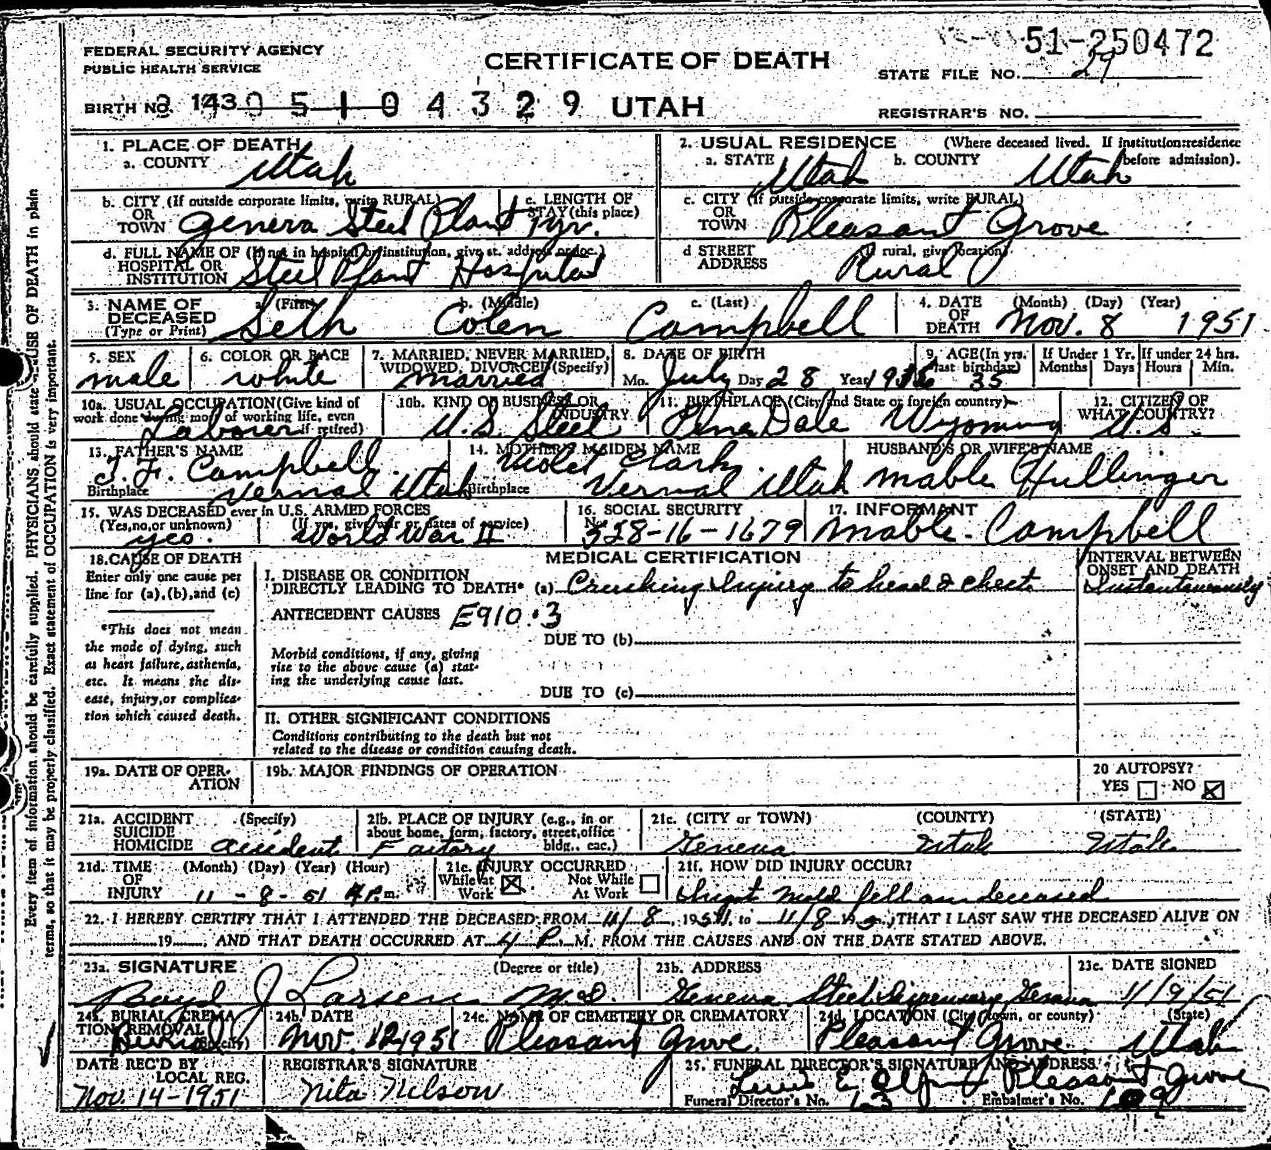 51-250472
FEDERAL SECURITY AGENCY
PUBLIC HEALTH SERVICE
CERTIFICATE OF DEATH
STATE FILE NO. 29
BIRTH NO. 143 0 5 1 0 4 3 2 9 UTAH
REGISTRAR'S NO.
1. PLACE OF DEATH
a. COUNTY Utah
2. USUAL RESIDENCE (Where deceased lived. If institution: residence before admission).
a. STATE Utah b. COUNTY Utah
b. CITY (If outside corporate limits, write RURAL) OR TOWN Geneva Steel Plant
c. LENGTH OF STAY (this place) yr.
c. CITY (If outside corporate limits, write RURAL) OR TOWN Pleasant Grove
d. FULL NAME OF (If not in hospital or institution, give st. address or loc.) HOSPITAL OR INSTITUTION Steel Plant Hospital
d STREET ADDRESS (If rural, give location) Rural
3. NAME OF DECEASED (Type or Print) a. (First) Seth b. (Middle) Colen c. (Last) Campbell
4. DATE OF DEATH (Month) (Day) (Year) Nov. 8 1951
5. SEX male
6. COLOR OR RACE white
7. MARRIED, NEVER MARRIED, WIDOWED, DIVORCED (Specify) married
8. DATE OF BIRTH Mo. July Day 28 Year
9. AGE (In yrs. last birthday) 35
If Under 1 Yr. Months Days
If under 24 hrs. Hours Min.
10a. USUAL OCCUPATION (Give kind of work done during most of working life, even if retired) Laborer
10b. KIND OF BUSINESS OR INDUSTRY U.S. Steel
11. BIRTHPLACE (City and State or foreign country) Dale Wyoming
12. CITIZEN OF WHAT COUNTRY? U.S.
13. FATHER'S NAME Campbell
Birthplace Vernal Utah
14. MOTHER'S MAIDEN NAME Violet Clark
Birthplace Vernal Utah
HUSBAND'S OR WIFE'S NAME Mable Hullinger
15. WAS DECEASED ever in U.S. ARMED FORCES
(Yes, no, or unknown) yes. (If yes, give war or dates of service) World War II
16. SOCIAL SECURITY No. 528-16-1679
17. INFORMANT Mable Campbell
18. CAUSE OF DEATH
Enter only one cause per line for (a), (b), and (c)
*This does not mean the mode of dying, such as heart failure, asthenia, etc. It means the disease, injury, or complication which caused death.
MEDICAL CERTIFICATION
I. DISEASE OR CONDITION DIRECTLY LEADING TO DEATH* (a) Crushing Injury to head & chest
INTERVAL BETWEEN ONSET AND DEATH
Instantaneously
ANTECEDENT CAUSES E910.3
DUE TO (b)
Morbid conditions, if any, giving rise to the above cause (a) stating the underlying cause last.
DUE TO (c)
II. OTHER SIGNIFICANT CONDITIONS
Conditions contributing to the death but not related to the disease or condition causing death.
19a. DATE OF OPERATION
19b. MAJOR FINDINGS OF OPERATION
20 AUTOPSY?
YES NO
21a. ACCIDENT SUICIDE HOMICIDE (Specify) accident
21b. PLACE OF INJURY (e.g., in or about home, farm, factory, street, office bldg., etc.) Factory
21c. (CITY or TOWN) (COUNTY) (STATE)
Geneva Utah Utah
21d. TIME OF INJURY (Month) (Day) (Year) (Hour) 11 - 8 - 51 4 P.m.
21e. INJURY OCCURRED
While at Work Not While At Work
21f. HOW DID INJURY OCCUR?
mold fell on deceased
22. I HEREBY CERTIFY THAT I ATTENDED THE DECEASED FROM 11/8, 1951, to 11/8, 19 , THAT I LAST SAW THE DECEASED ALIVE ON
19 , AND THAT DEATH OCCURRED AT 4 P. M. FROM THE CAUSES AND ON THE DATE STATED ABOVE.
23a. SIGNATURE (Degree or title)
Boyd J Larsen M.D.
23b. ADDRESS
Geneva Steel Dispensary, Geneva
23c. DATE SIGNED
11/9/51
24a. BURIAL, CREMATION, REMOVAL (Specify) Burial
24b. DATE
Nov. 12 1951
24c. NAME OF CEMETERY OR CREMATORY
Pleasant Grove
24d. LOCATION (City, town, or county) (State)
Pleasant Grove Utah
DATE REC'D BY LOCAL REG.
Nov. 14-1951
REGISTRAR'S SIGNATURE
Nita Nelson
25. FUNERAL DIRECTOR'S SIGNATURE AND ADDRESS
Pleasant Grove
Funeral Director's No. 13 Embalmer's No.
Every item of information should be carefully supplied. PHYSICIANS should state CAUSE OF DEATH in plain
terms, so that it may be properly classified. Exact statement of OCCUPATION is very important.